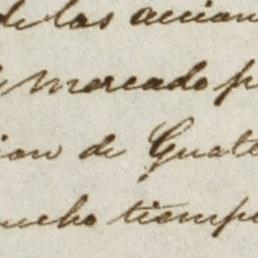 de las accion
Mercado p
ion de Guate
ucho tiempo